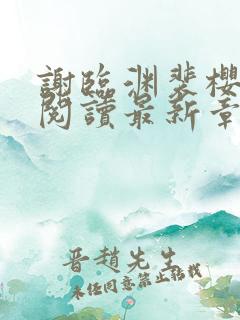 謝臨渊裴櫻
閱讀最新章
晋趙先生
未经同意禁止转载